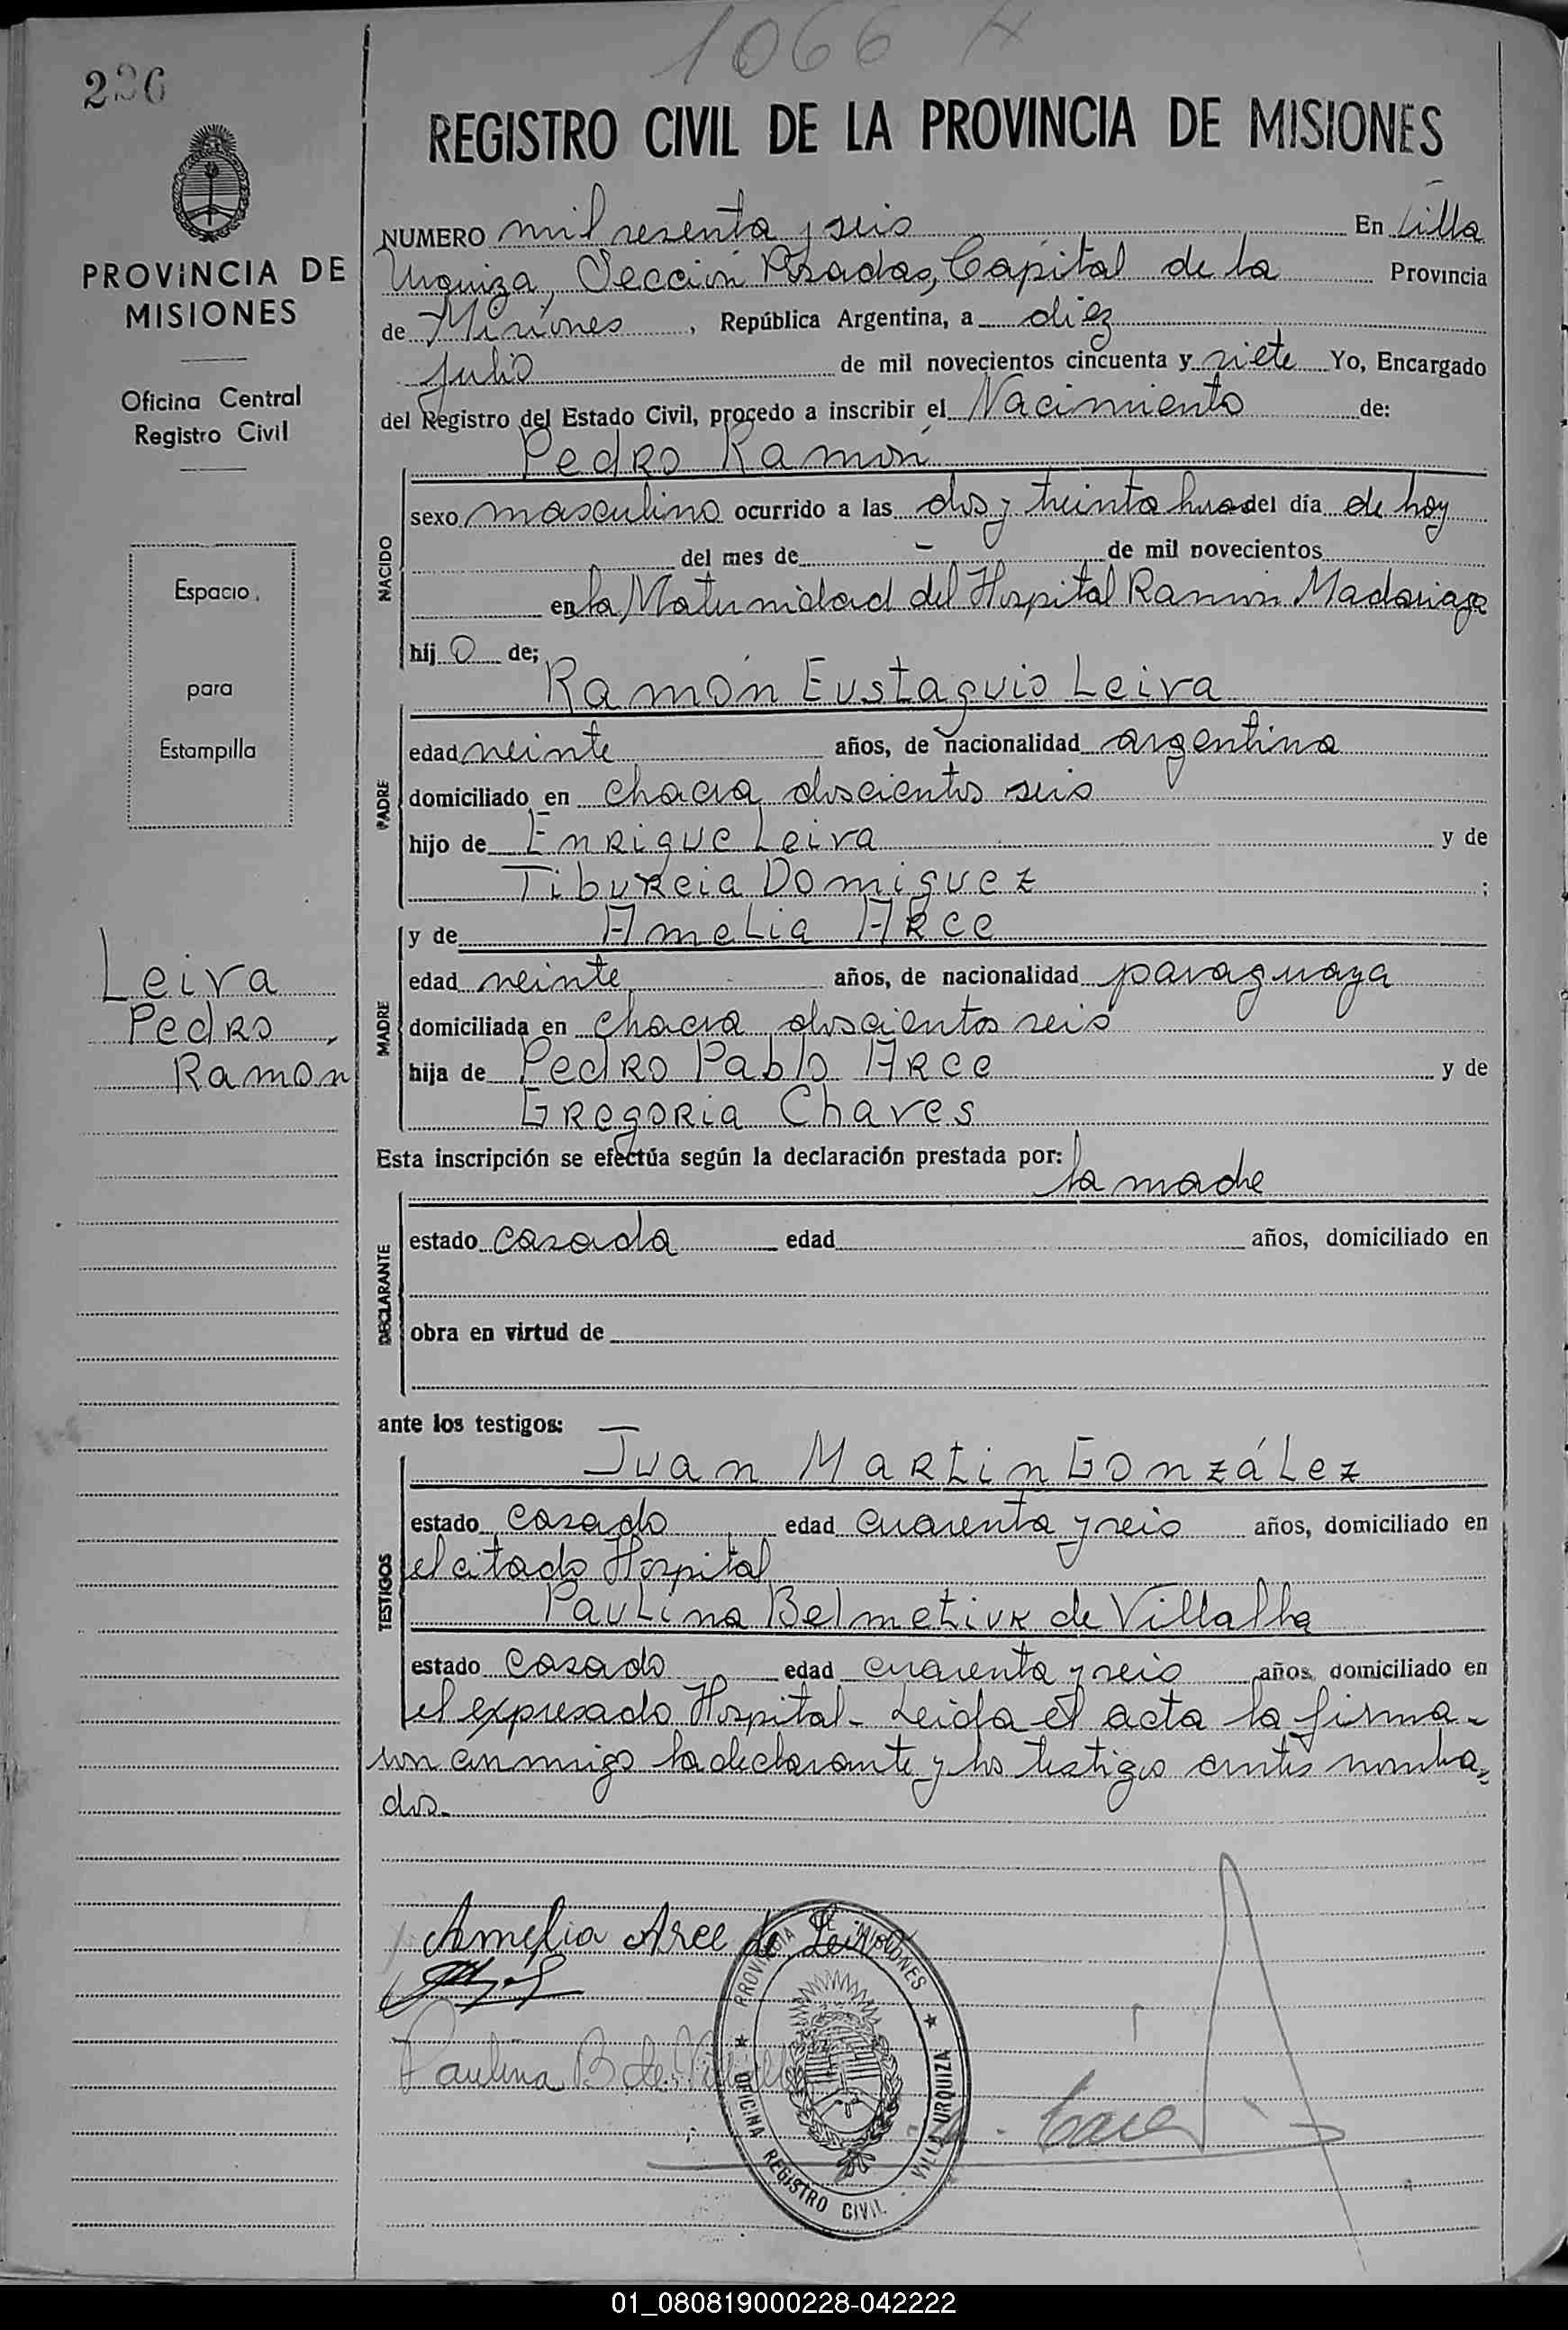 1066
236
PROVINCIA DE
MISIONES
Oficina Central
Registro Civil
Espacio
para
Estampilla
Leiva
Pedro
Ramon
REGISTRO CIVIL DE LA PROVINCIA DE MISIONES
NUMERO mil sesenta y seis En Villa
Urquiza, Sección Posadas, Capital de la Provincia
de Misiones, República Argentina, a diez
julio de mil novecientos cincuenta y siete Yo, Encargado
del Registro del Estado Civil, procedo a inscribir el Nacimiento de:
NACIDO
Pedro Ramón
sexo masculino ocurrido a las dos y treinta horas del día de hoy
del mes de - de mil novecientos
en la Maternidad del Hospital Ramón Madariaga
hij o de;
PADRE
Ramón Eustaquio Leiva
edad veinte años, de nacionalidad argentina
domiciliado en chacra doscientos seis
hijo de Enrique Leiva y de
Tiburcia Domiguez ;
MADRE
y de Amelia Arce
edad veinte años, de nacionalidad paraguaya
domiciliada en chacra doscientos seis
hija de Pedro Pablo Arce y de
Gregoria Chaves
Esta inscripción se efectúa según la declaración prestada por:
la madre
DECLARANTE
estado casada edad años, domiciliado en
obra en virtud de
ante los testigos:
TESTIGOS
Juan Martin González
estado casado edad cuarenta y seis años, domiciliado en
el citado Hospital
Paulina de Villalba
estado casado edad cuarenta y seis años, domiciliado en
el expresado Hospital- Leida el acta la firma-
ron conmigo la declarante y los testigos antes nombra=
dos.-
Amelia Arce de Leiva
Paulina B de Villalba
PROVINCIA DE MISIONES
OFICINA REGISTRO CIVIL - VILLA URQUIZA
01_080819000228-042222